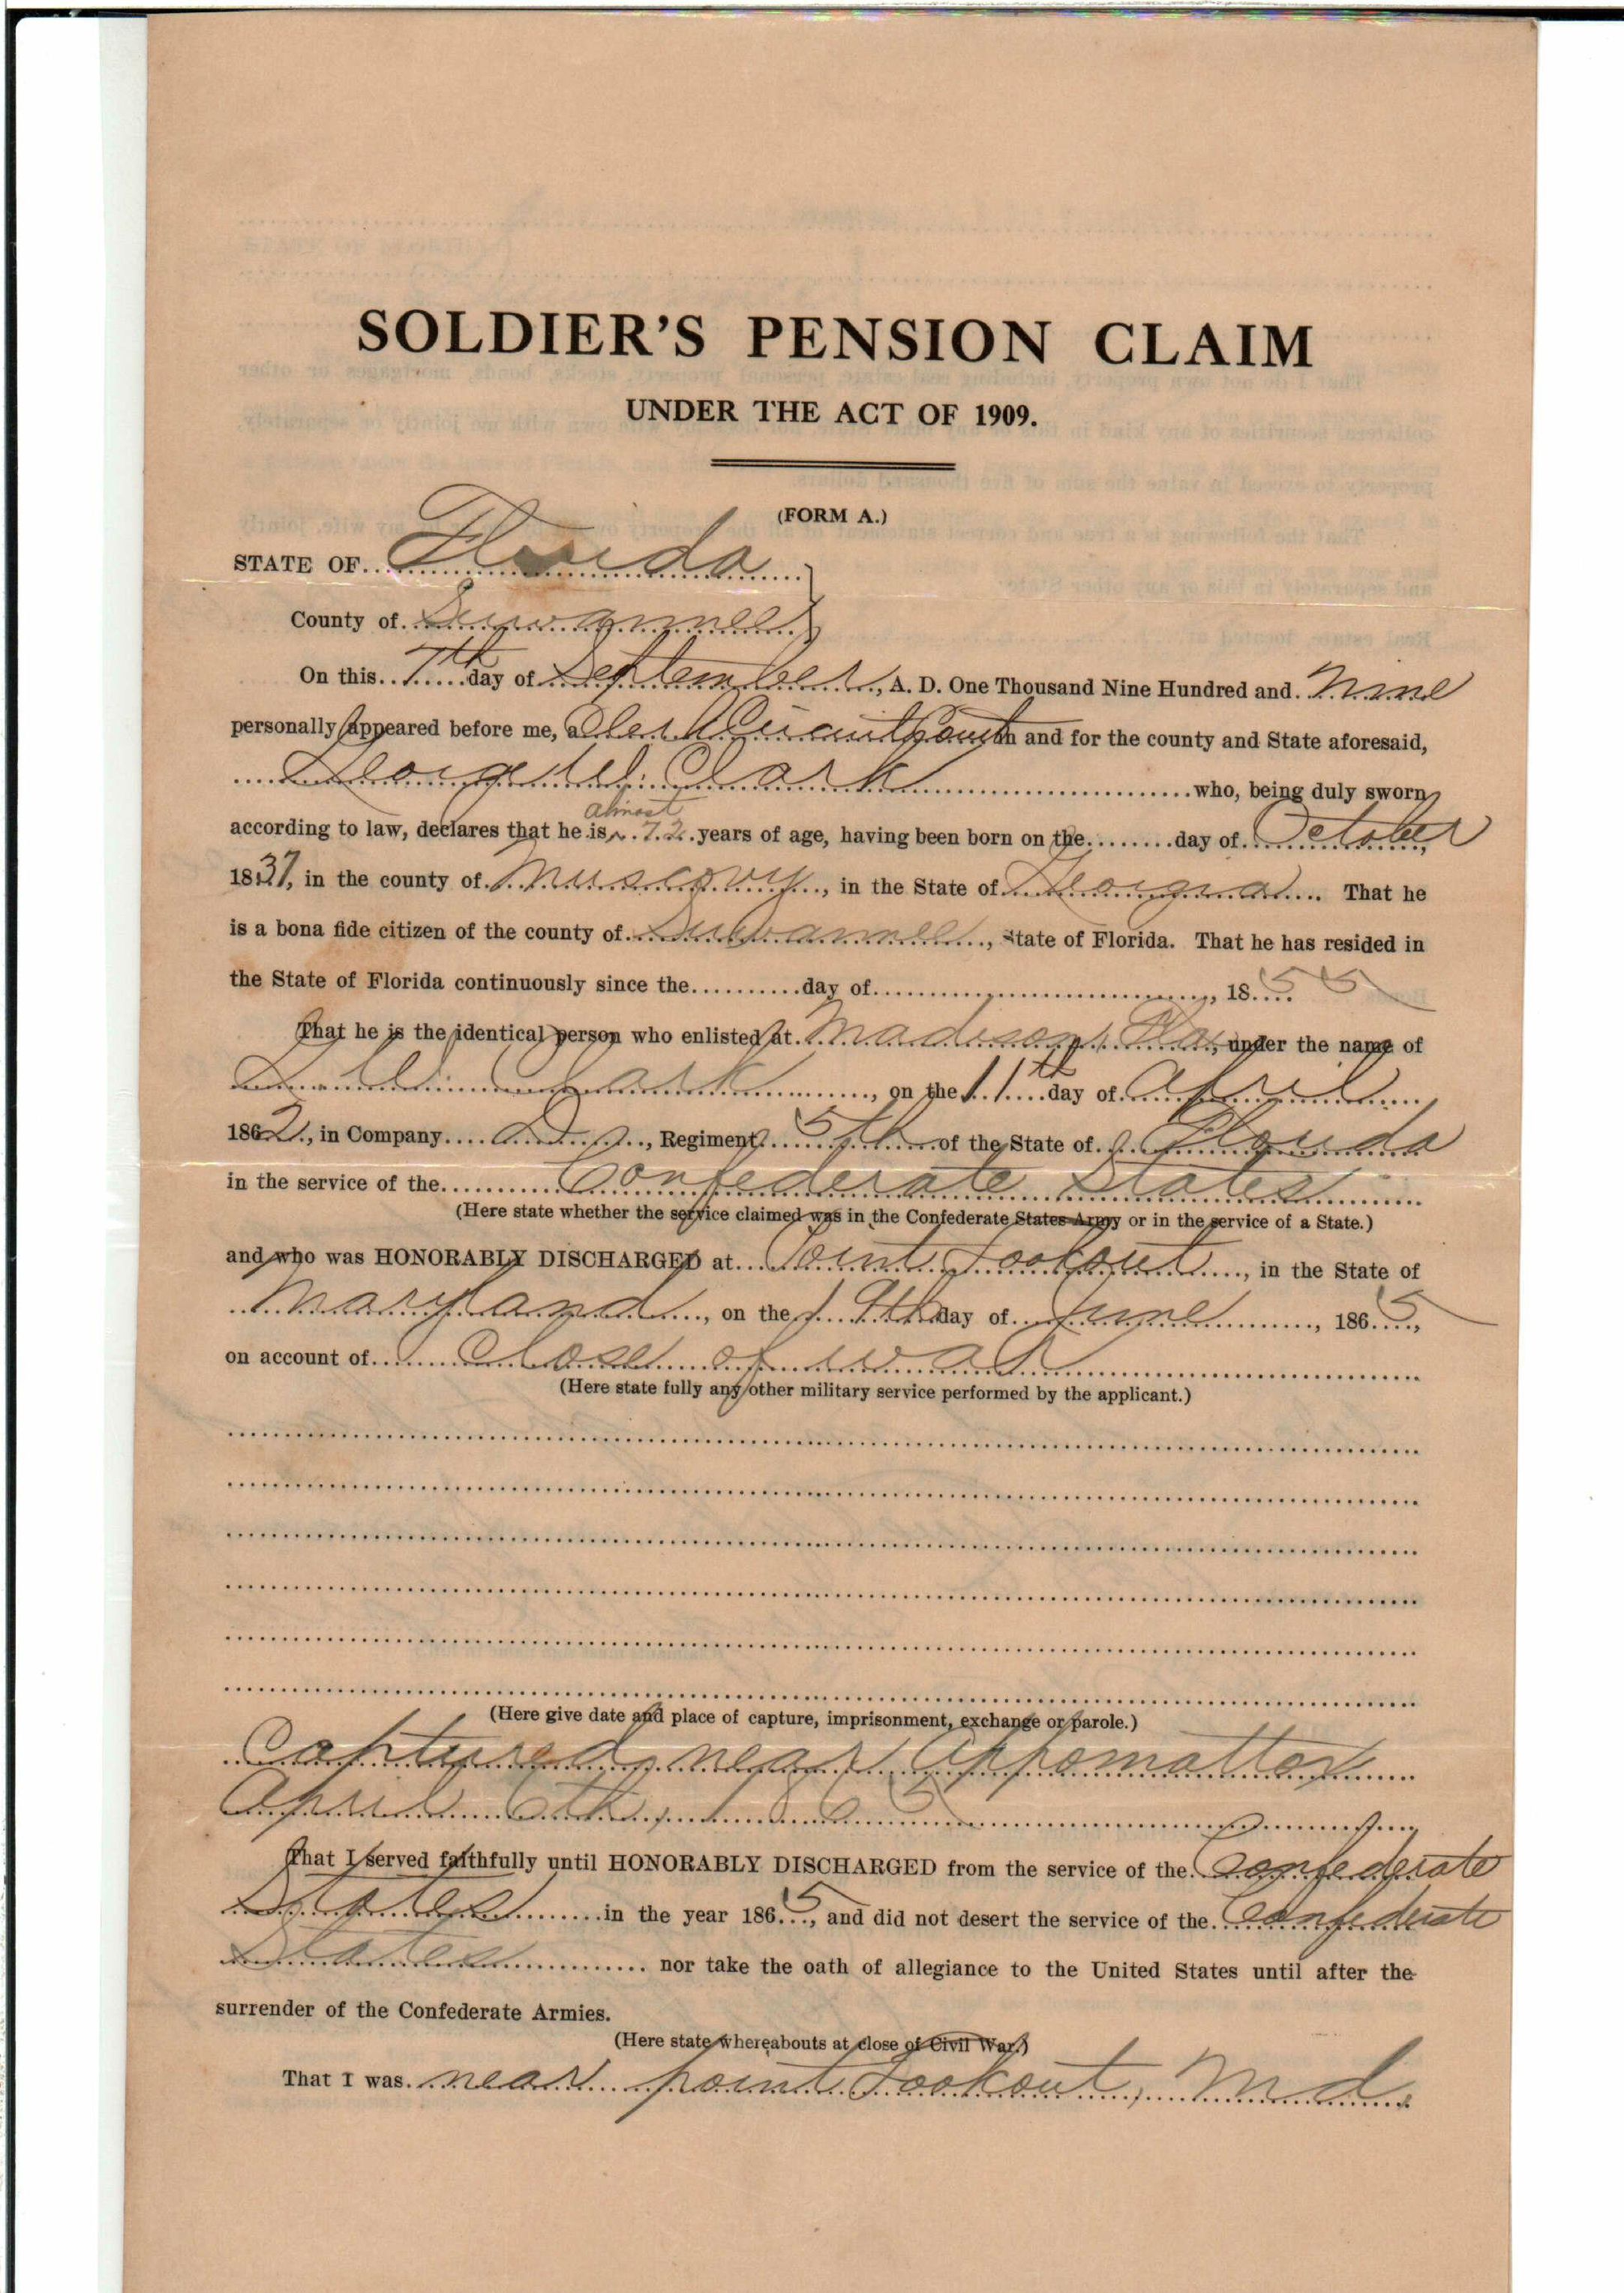 SOLDIER'S PENSION CLAIM
UNDER THE ACT OF 1909.
(FORM A.)
STATE OF Florida
County of Suwannee
On this 7th day of September, A. D. One Thousand Nine Hundred and Nine
personally appeared before me, a Clerk Circuit Court in and for the county and State aforesaid,
George W. Clark who, being duly sworn
almost
according to law, declares that he is 72 years of age, having been born on the day of October
1837, in the county of Muscovy, in the State of Georgia. That he
is a bona fide citizen of the county of Suwannee, State of Florida. That he has resided in
the State of Florida continuously since the day of , 1855
That he is the identical person who enlisted at Madison, Fla, under the name of
Clark, on the 11th day of April
1862, in Company , Regiment 5th of the State of Florida
in the service of the Confederate States
(Here state whether the service claimed was in the Confederate States Army or in the service of a State.)
and who was HONORABLY DISCHARGED at Point Lookout, in the State of
Maryland, on the 19th day of June, 1865,
on account of Close of war
(Here state fully any other military service performed by the applicant.)
(Here give date and place of capture, imprisonment, exchange or parole.)
Captured near Appomattox
April 6th, 1865
That I served faithfully until HONORABLY DISCHARGED from the service of the Confederate
States in the year 1865, and did not desert the service of the Confederate
States nor take the oath of allegiance to the United States until after the
surrender of the Confederate Armies.
(Here state whereabouts at close of Civil War.)
That I was near point Lookout, Md.